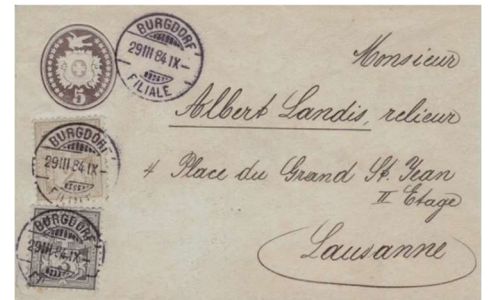 BURGDORF
29 III 84 IX-
FILIALE
5
BURGDORF
29 III 84 IX-
FILIALE
BURGDORF
29 III 84 IX-
Monsieur
Albert Landis, relieur
4 Place du Grand St. Jean
II Etage
Lausanne